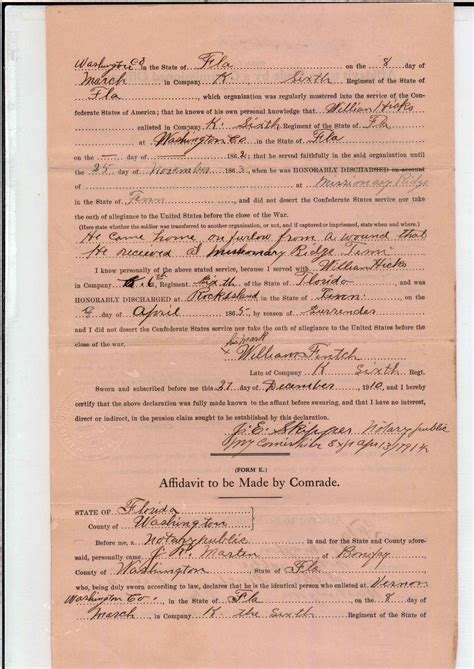 Washington Co in the State of Fla on the 8 day of
March in Company K Sixth Regiment of the State of
Fla, which organisation was regularly mustered into the service of the Con-
federate States of America; that he knows of his own personal knowledge that William Hicks
enlisted in Company K. Sixth Regiment of the State of Fla
at Washington Co in the State of Fla
on the — day of — 1862; that he served faithfully in the said organization until
the 25 day of November 1863, when he was HONORABLY DISCHARGED on account
of at Missionary Ridge
in the State of Tenn, and did not desert the Confederate States service nor take
the oath of allegiance to the United States before the close of the War.
(Here state whether the soldier was transferred to another organisation, or not, and if captured or imprisoned, state when and where.)
He came home on furlow from a wound that
he received at Missionary Ridge Tenn
I know personally of the above stated service, because I served with William Hicks
in Company K 6th Regiment, Sixth of the State of Florida and was
HONORABLY DISCHARGED at in the State of Tenn, on the
9 day of April 1865, by reason of Surrender
and I did not desert the Confederate States service nor take the oath of allegiance to the United States before the
close of the war. his mark
William Fintch
Late of Company K Sixth Regt.
Sworn and subscribed before me this 27 day of December, 1910, and I hereby
certify that the above declaration was fully made known to the affiant before swearing, and that I have no interest,
direct or indirect, in the pension claim sought to be established by this declaration.
J. E. Skipper Notary public
My Comission Exp Apr 13/1914
(FORM E.)
Affidavit to be Made by Comrade.
STATE OF Florida
County of Washington
Before me, a Notary public in and for the State and County afore-
said, personally came J. W. Marten of Bonifay
County of Washington State of Fla
who, being duly sworn according to law, declares that he is the identical person who enlisted at Vernon
Washington Co., in the State of Fla on the 8 day of
March, in Company K the Sixth Regiment of the State of